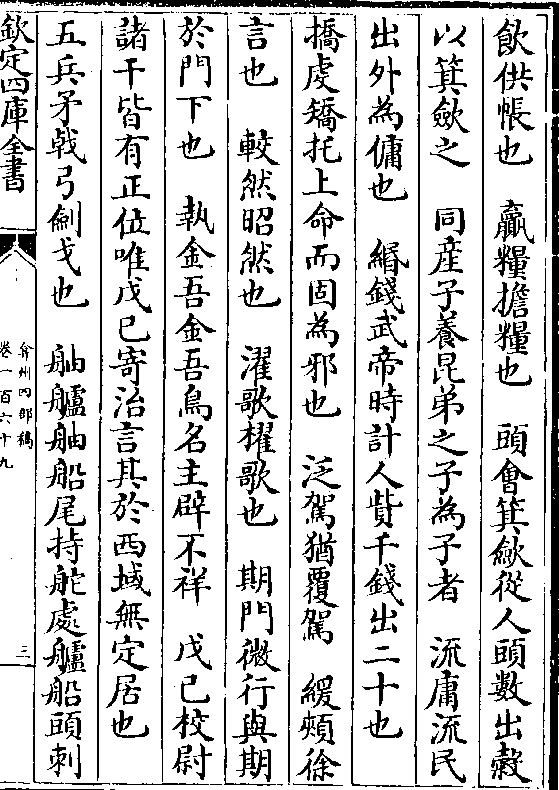 飲供帳也　贏糧擔糧也　頭會箕斂從人頭數出穀
以箕斂之　同産子養昆弟之子為子者　流庸流民
出外為傭也　緡錢武帝時計人貲千錢出二十也
撟虔矯托上命而固為邪也　泛駕猶覆駕　緩頰徐
言也　較然昭然也　濯歌櫂歌也　期門微行與期
於門下也　執金吾金吾鳥名主辟不祥　戊己校尉
諸干皆有正位唯戊己寄治言其於西域無定居也
五兵矛戟弓劍戈也　舳艫舳船尾持舵處艫船頭刺
欽定四庫全書
弇州四部稿
卷一百六十九
三